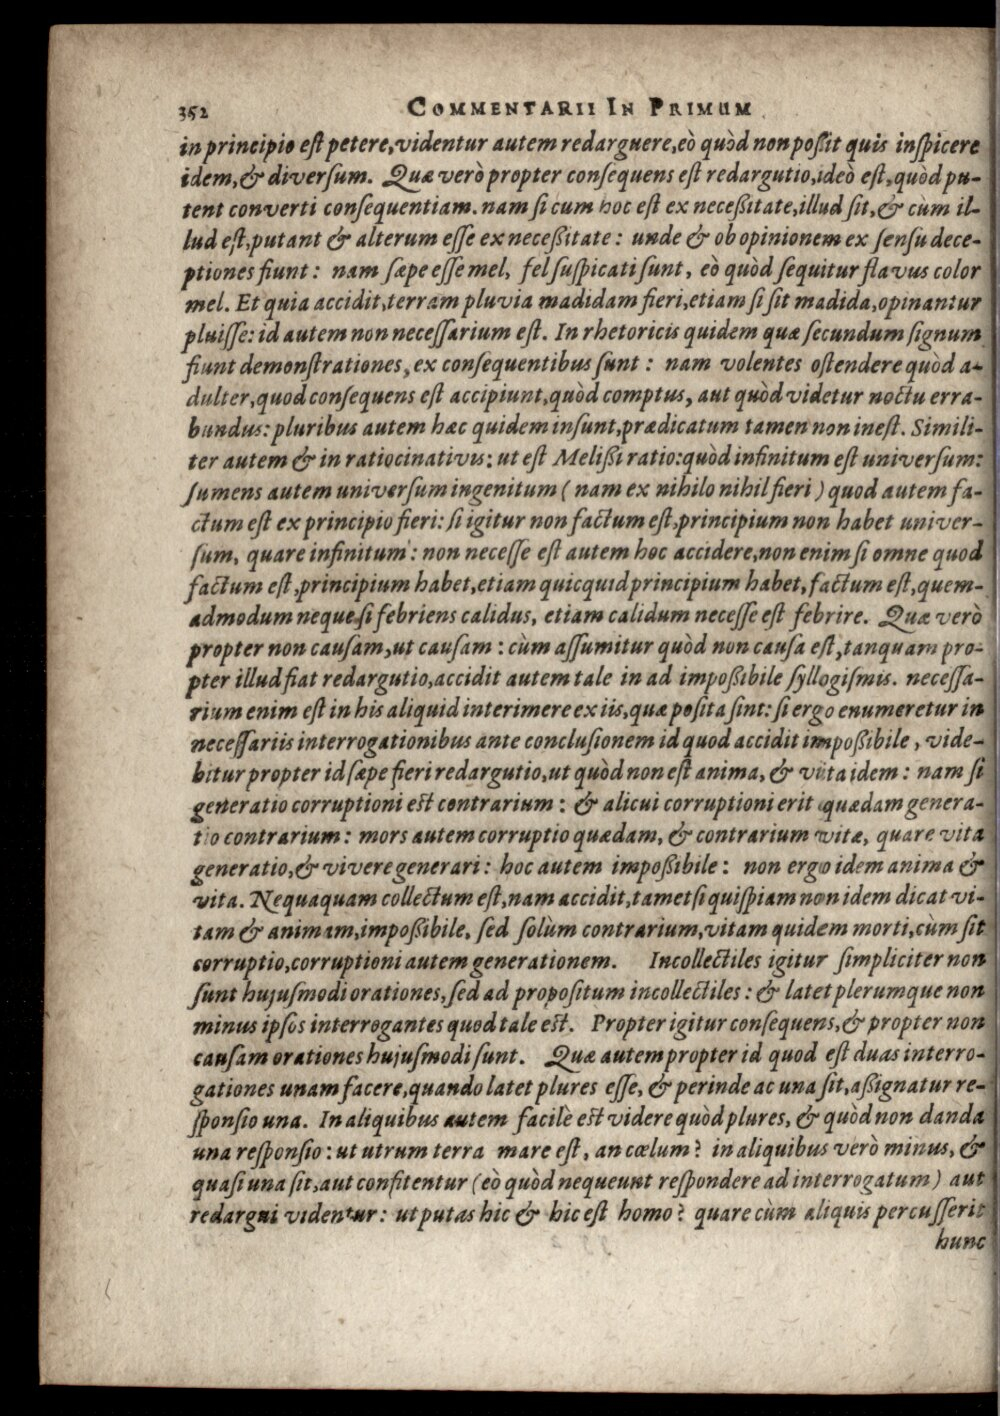 352 COMMENTARII IN PRIMUM
in principio eſt petere, videntur autem redarguere, eò quòd non poßit quis inſpicere
idem, & diverſum. Quæ verò propter conſequens eſt redargutio, ideò eſt, quòd pu-
tent converti conſequentiam. nam ſi cum hoc eſt ex neceßitate, illud ſit, & cùm il-
lud eſt, putant & alterum eſſe ex neceßitate: unde & ob opinionem ex ſenſu dece-
ptiones fiunt: nam ſæpe eſſe mel, fel ſuſpicati ſunt, eò quòd ſequitur flavus color
mel. Et quia accidit, terram pluvia madidam fieri, etiam ſi ſit madida, opinantur
pluiſſe: id autem non neceſſarium eſt. In rhetoricis quidem quæ secundum ſignum
fiunt demonſtrationes, ex conſequentibus ſunt: nam volentes oſtendere quòd a-
dulter, quod conſequens eſt accipiunt, quòd comptus, aut quòd videtur noctu erra-
bundus: pluribus autem hæc quidem inſunt, prædicatum tamen non ineſt. Simili-
ter autem & in ratiocinativis: ut eſt Melißi ratio: quòd infinitum eſt univerſum:
ſumens autem univerſum ingenitum (nam ex nihilo nihil fieri) quod autem fa-
ctum eſt ex principio fieri: ſi igitur non factum eſt, principium non habet univer-
ſum, quare infinitum: non neceſſe eſt autem hoc accidere, non enim ſi omne quod
factum eſt, principium habet, etiam quicquid principium habet, factum eſt, quem-
admodum neque ſi febriens calidus, etiam calidum neceſſe eſt febrire. Quæ verò
propter non cauſam, ut cauſam: cùm aſſumitur quòd non cauſa eſt, tanquam pro-
pter illud fiat redargutio, accidit autem tale in ad impoßibile ſyllogiſmis. neceſſa-
rium enim eſt in his aliquid interimere ex iis, quæ poſita ſint: ſi ergo enumeretur in
neceſſariis interrogationibus ante concluſionem id quod accidit impoßibile, vide-
bitur propter id ſæpe fieri redargutio, ut quòd non eſt anima, & vita idem: nam ſi
generatio corruptioni eſt contrarium: & alicui corruptioni erit quædam genera-
tio contrarium: mors autem corruptio quædam, & contrarium vitæ, quare vita
generatio, & vivere generari: hoc autem impoßibile: non ergo idem anima &
vita. Nequaquam collectum eſt, nam accidit, tametſi quiſpiam non idem dicat vi-
tam & animam, impoßibile, ſed ſolùm contrarium, vitam quidem morti, cùm ſit
corruptio, corruptioni autem generationem. Incollectiles igitur ſimpliciter non
ſunt hujuſmodi orationes, ſed ad propoſitum incollectiles: & latet plerumque non
minus ipſos interrogantes quod tale eſt. Propter igitur conſequens, & propter non
cauſam orationes hujuſmodi ſunt. Quæ autem propter id quod eſt duas interro-
gationes unam facere, quando latet plures eſſe, & perinde ac una ſit, aßignatur re-
ſponſio una. In aliquibus autem facilè eſt videre quòd plures, & quòd non danda
una reſponſio: ut utrum terra mare eſt, an cœlum? in aliquibus verò minus, &
quaſi una ſit, aut confitentur (eò quòd nequeunt reſpondere ad interrogatum) aut
redargui videntur: ut putas hic & hic eſt homo? quare cùm aliquis percuſſerit
hunc